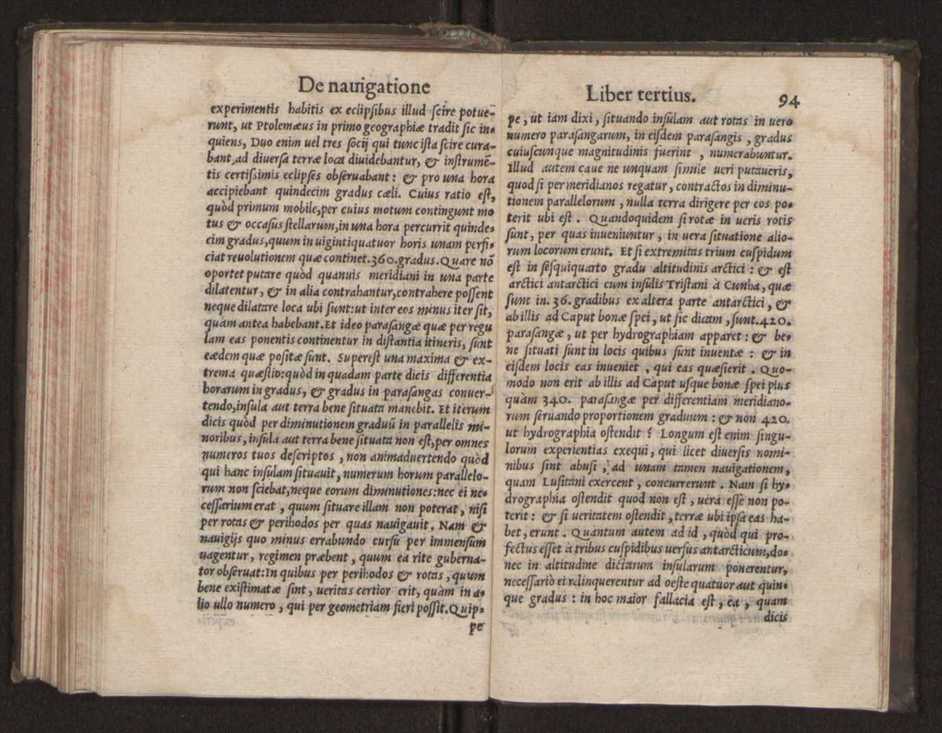 De nauigatione
experimentis habitis ex eclipsibus illud scire potue-
runt, ut Ptolemæus in primo geographiæ tradit sic in-
quiens, Duo enim uel tres socij qui tunc ista scire cura-
bant, ad diuersa terræ loca diuidebantur, & instrumē-
tis certissimis eclipses obseruabant: & pro una hora
accipiebant quindecim gradus cæli. Cuius ratio est,
quòd primum mobile, per cuius motum contingunt mo
tus & occasus stellarum, in una hora percurrit quinde-
cim gradus, quum in uigintiquatuor horis unam perfi-
ciat reuolutionem quæ continet. 360. gradus. Quare nō
oportet putare quòd quanuis meridiani in una parte
dilatentur, & in alia contrahantur, contrahere possent
neque dilatare loca ubi sunt: ut inter eos minus iter sit,
quàm antea habebant. Et ideo parasangæ quæ per regu
lam eas ponentis continentur in distantia itineris, sunt
eædem quæ positæ sunt. Superest una maxima & ex-
trema quæstio: quòd in quadam parte dicis differentia
horarum in gradus, & gradus in parasangas conuer-
tendo, insula aut terra bene situata manebit. Et iterum
dicis quòd per diminutionem graduū in parallelis mi-
noribus, insula aut terra bene situata non est, per omnes
numeros tuos descriptos, non animaduertendo quòd
qui hanc insulam situauit, numerum horum parallelo-
rum non sciebat, neque eorum diminutiones: nec ei ne-
cessarium erat, quum situare illam non poterat, nisi
per rotas & perihodos per quas nauigauit. Nam &
nauigijs quo minus errabundo cursu per immensum
uagentur, regimen præbent, quum ea rite guberna-
tor obseruat: In quibus per perihodos & rotas, quum
bene existimatæ sint, ueritas certior erit, quàm in a-
lio ullo numero, qui per geometriam fieri possit. Quip-
pe
Liber tertius. 94
pe, ut iam dixi, situando insulam aut rotas in uero
numero parasangarum, in eisdem parasangis, gradus
cuiuscunque magnitudinis fuerint, numerabuntur.
Illud autem caue ne unquam simile ueri putaueris,
quod si per meridianos regatur, contractos in diminu-
tionem parallelorum, nulla terra dirigere per eos po-
terit ubi est. Quandoquidem si rotæ in ueris rotis
sunt, per quas inueniuntur, in uera situatione alio-
rum locorum erunt. Et si extremitas trium cuspidum
est in sesquiquarto gradu altitudinis arctici: & est
arctici antarctici cum insulis Tristani à Cunha, quæ
sunt in. 36. gradibus ex altera parte antarctici, &
ab illis ad Caput bonæ spei, ut sic dicam, sunt. 420.
parasangæ, ut per hydrographiam apparet: & be-
ne situati sunt in locis quibus sunt inuentæ: & in
eisdem locis eas inueniet, qui eas quæsierit. Quo-
modo non erit ab illis ad Caput usque bonæ spei plus
quàm 340. parasangæ per differentiam meridiano-
rum seruando proportionem graduum: & non 420.
ut hydrographia ostendit? Longum est enim singu-
lorum experientias exequi, qui licet diuersis nomi-
nibus sint abusi, ad unam tamen nauigationem,
quam Lusitani exercent, concurrerunt. Nam si hy-
drographia ostendit quod non est, uera esse non po-
terit: & si ueritatem ostendit, terræ ubi ipsa eas ha-
bet, erunt. Quantum autem ad id, quòd qui pro-
fectus esset à tribus cuspidibus uersus antarcticum, do-
nec in altitudine dictarum insularum poneretur,
necessariò ei relinquerentur ad oeste quatuor aut quin-
que gradus: in hoc maior fallacia est, ea, quam
dicis